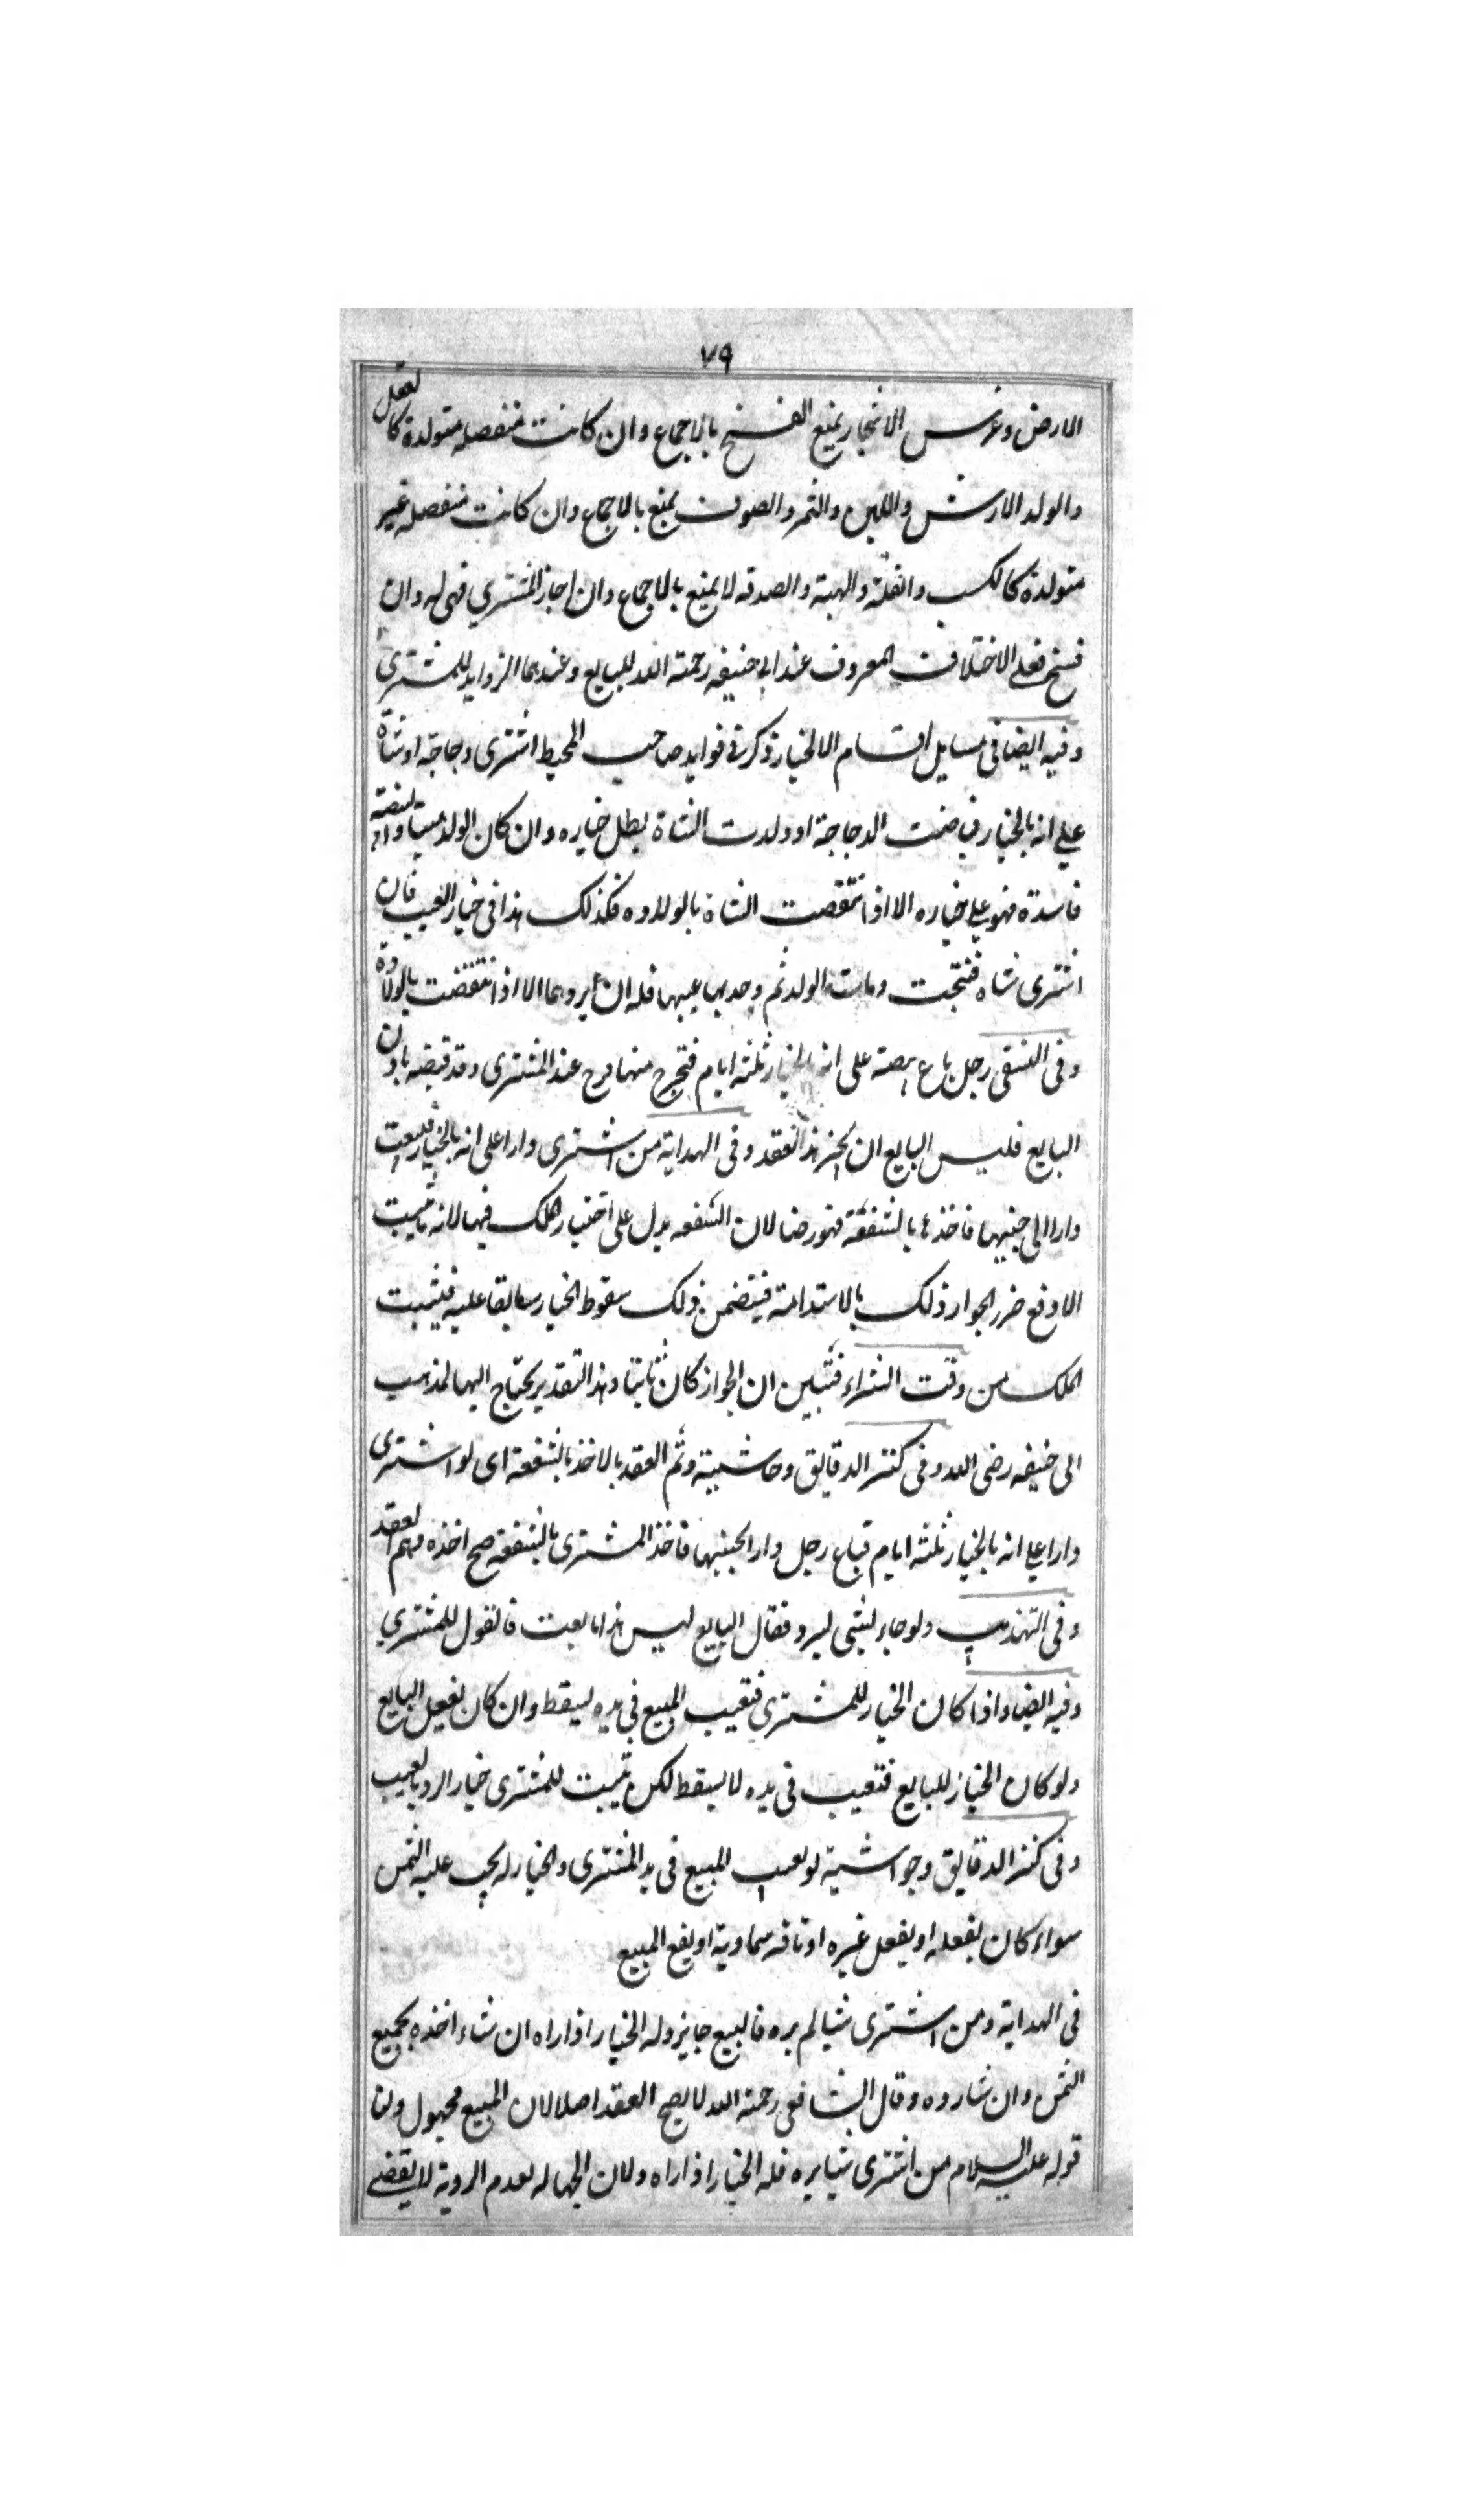 ٧٩
الارض وغرس الاشجار يمنع الفسخ بالاجماع وان كانت منفصله متولدة كالعقل
والولد الارش واللبن والثمر والصوف يمنع بالاجماع وان كانت منفصله غير
متولدة كالكسب والغلة والهبة والصدقه لا يمنع بالاجماع وان اجاز المشتري فهى له وان
فسخ فعلى الاختلاف المعروف عند ابى حنيفه رحمة الله للبايع وعندهما الزوايد للمشترى
وفيه ايضا فى مسايل اقسام الاالخيار ذكر فى فوايد صاحب المحيط اشترى دجاجة او شاة
على انه بالخيار فباضت الدجاجة او ولدت الشاة يطل خياره وان كان الولد ميتا والبيضة
فاسدة فهو على خياره الا اذا انتقصت الشاة بالولاده فكذلك هذا فى خيار العيب فان
اشترى شاه فنتجت ومات الولد ثم وجد بها عيبها فله ان يردهما الا اذا انتقضت بالولادة
وفى المنتقى رجل باع بيضة على انه بالخيار ثلثة ايام فتخرج منها فرح عند المشترى وقد قبضه باذن
البايع فليس البايع ان يجيز هذا العقد وفى الهداية من اشترى دارا على انه بالخيار فبيعت
دارا الى جنبيها فاخذها بالشفعة فهو رضا لان الشفعه يدل على اختيار الملك فيها لانه ما يثبت
الا دفع ضرر الجوار ذلك بالاستدامة فيتضمن ذلك سقوط الخيار سابقا عليه فيثبت
الملك من وقت الشراء فتبين ان الجواز كان ثابتا وهذا التقدير يحتاج اليها لمذهب
ابى حنيفه رضى الله وفى كنز الدقايق وحاشيته وتم العقد بالاخذ بالشفعة اى لو اشترى
دارا على انه بالخيار ثلثة ايام فباع رجل دارا بجنبيها فاخذ المشترى بالشفعة صح اخذه وتم العقد
وفى التهذيب ولو جاء بشى ليرد فقال البايع ليس هذا ما بعت فالقول للمشتري
وفيه ايضا واذا كان الخيار للمشترى فتعيب المبيع فى يده يسقط وان كان بفعل البايع
ولو كان الخيار للبايع فتعيب فى يده لا يسقط لكن يثبت للمشترى خيار الرد بالعيب
وفى كنز الدقايق وحواشية لو تعيب المبيع فى يد المشترى والخيار له يجب عليه الثمن
سواء كان بفعله او بفعل غيره او بافه سماوية او بفع المبيع
فى الهداية ومن اشترى شيا لم يره فالبيع جايز وله الخيار اذا راه ان شاء اخذه بجميع
الثمن وان شا رده وقال الشافعى رحمة الله لا يصح العقد اصلا لان المبيع مجهول ولنا
قوله عليه السلام من اشترى شيا يره فله الخيار اذا راه ولان الجهاله لعدم الروية لا يفضى